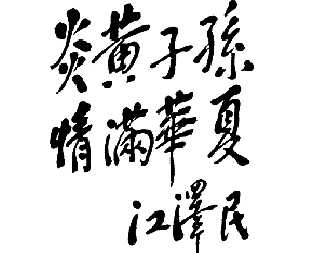 炎黃子孫
情滿華夏
江澤民